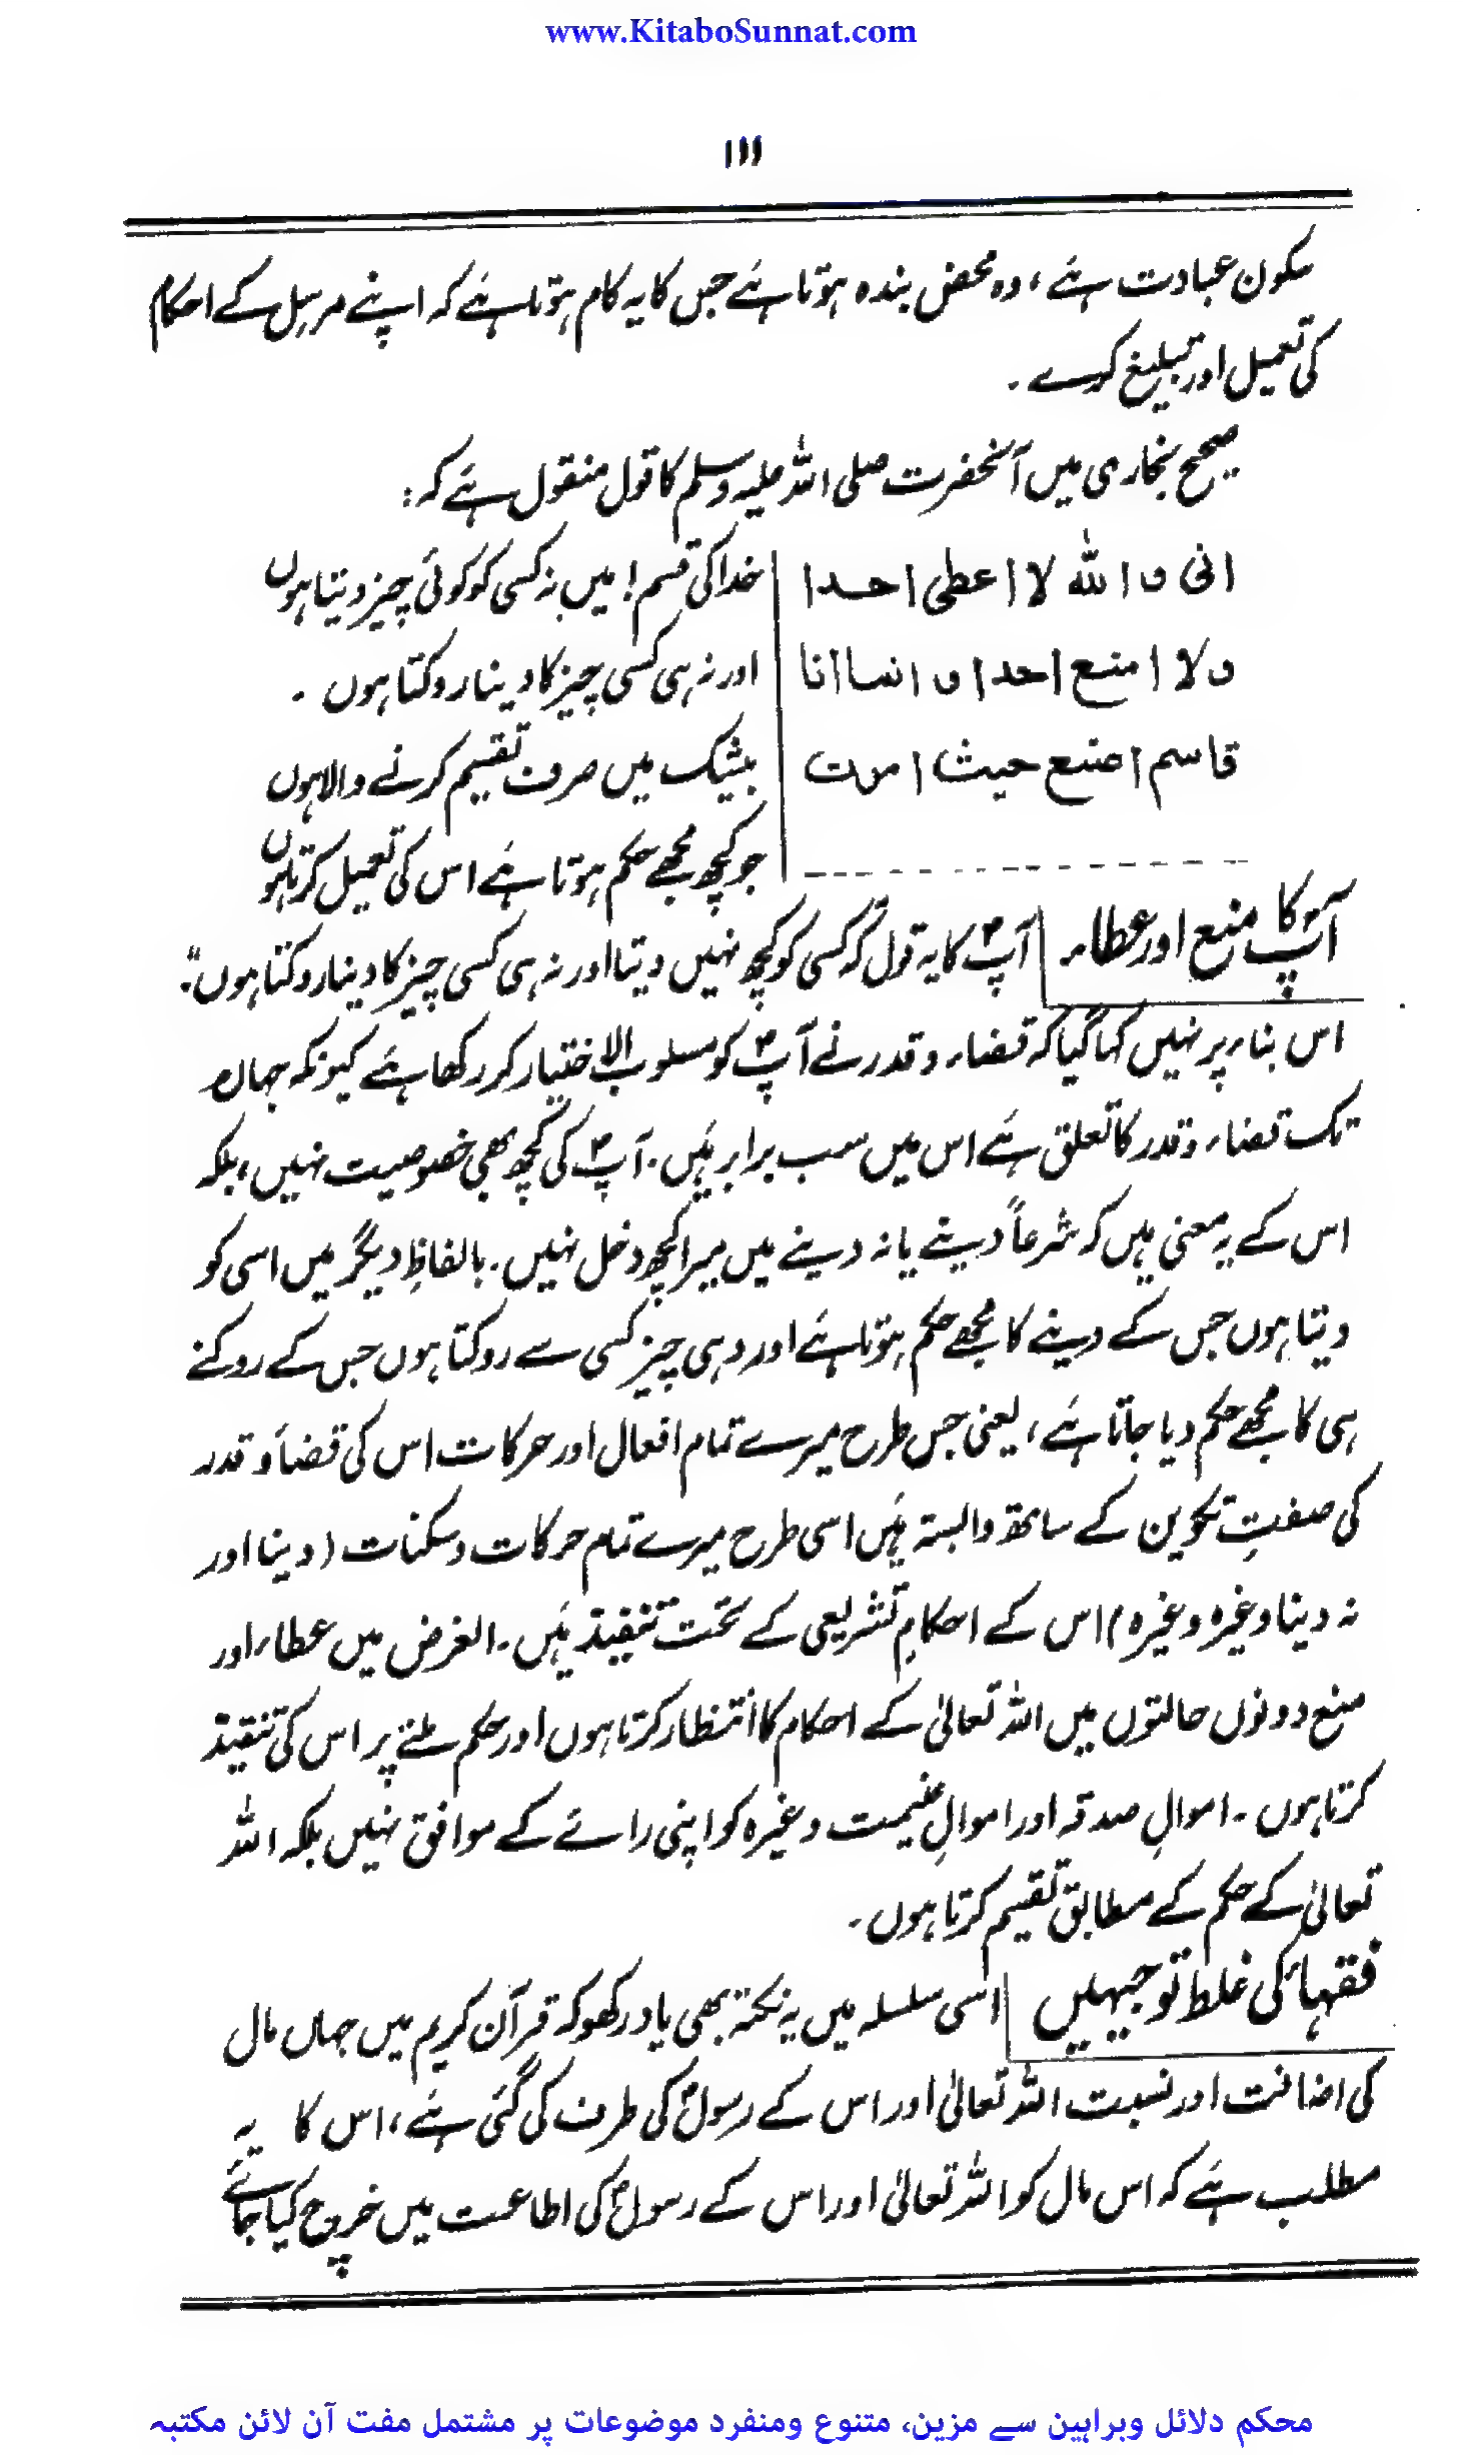 www.KitaboSunnat.com
۱۱۱
سکون عبادت ہے، وہ محض بندہ ہوتا ہے جس کا یہ کام ہوتا ہے کہ اپنے مرسِل کے احکام
کی تعمیل اور تبلیغ کرے۔
صحیح بخاری میں آنحضرت صلی اللہ علیہ وسلم کا قول منقول ہے کہ:
انی واللہ لا اعطی احدا
ولا امنع احدا وانما انا
قاسم اضع حیث امرت
خدا کی قسم! میں نہ کسی کو کوئی چیز دیتا ہوں
اور نہ ہی کسی چیز کا دینا روکتا ہوں۔
بیشک میں صرف تقسیم کرنے والا ہوں
جو کچھ مجھے حکم ہوتا ہے اس کی تعمیل کرتا ہوں
آپؐ کا منع اور عطاء
آپؐ کا یہ قول کہ کسی کو کچھ نہیں دیتا اور نہ ہی کسی چیز کا دینا روکتا ہوں"۔
اس بناء پر نہیں کہا گیا کہ قضاء و قدر نے آپؐ کو مسلوب الاختیار کر رکھا ہے کیونکہ جہاں
تک قضاء و قدر کا تعلق ہے اس میں سب برابر ہیں۔ آپؐ کی کچھ بھی خصوصیت نہیں، بلکہ
اس کے یہ معنی ہیں کہ شرعاً دینے یا نہ دینے میں میرا کچھ دخل نہیں۔ بالفاظِ دیگر میں اسی کو
دیتا ہوں جس کے دینے کا مجھے حکم ہوتا ہے اور وہی چیز کسی سے روکتا ہوں جس کے روکنے
ہی کا مجھے حکم دیا جاتا ہے، یعنی جس طرح میرے تمام افعال اور حرکات اس کی قضأ و قدر
کی صفتِ تکوین کے ساتھ وابستہ ہیں اسی طرح میرے تمام حرکات و سکنات (دینا اور
نہ دینا وغیرہ وغیرہ) اس کے احکامِ تشریعی کے تحت تنفیذ ہیں۔ الغرض میں عطاء اور
منع دونوں حالتوں میں اللہ تعالیٰ کے احکام کا انتظار کرتا ہوں اور حکم ملنے پر اس کی تنفیذ
کرتا ہوں۔ اموالِ صدقہ اور اموالِ غنیمت وغیرہ کو اپنی رائے کے موافق نہیں بلکہ اللہ
تعالیٰ کے حکم کے مطابق تقسیم کرتا ہوں۔
فقہائ کی غلط توجیہیں
اسی سلسلہ میں یہ نکتہ بھی یاد رکھو کہ قرآن کریم میں جہاں مال
کی اضافت اور نسبت اللہ تعالیٰ اور اس کے رسولؐ کی طرف کی گئی ہے، اس کا یہ
مطلب ہے کہ اس مال کو اللہ تعالیٰ اور اس کے رسولؐ کی اطاعت میں خرچ کیا جائے
محکم دلائل وبراہین سے مزین، متنوع ومنفرد موضوعات پر مشتمل مفت آن لائن مکتبہ